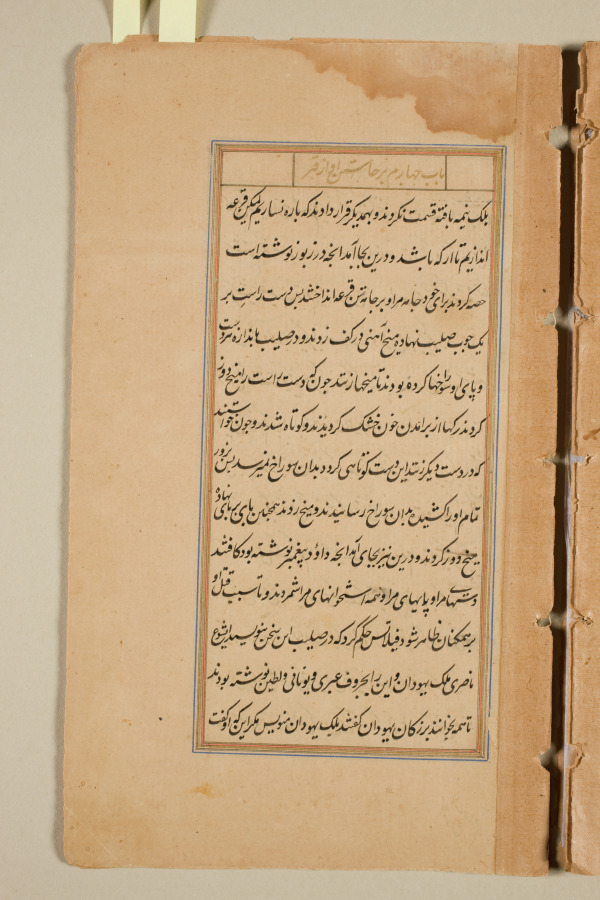 باب چهارم برخاستن او از قبر
بلک نیمه بافته قسمت نکردند و بهمدیگر قرار دادند که پاره نسازیم لیکن قرعه
اندازیم تا از که باشد و درین بجا آمد انچه در زبور نوشته است
حصه کردند برای خود جامه مرا و بر جامه من قرعه انداختند پس دست راست بر
یک چوب صلیب نهاده میخ آهنی در کف زدند و در صلیب باندازه هر دست
و پای او سوراخها کرده بودند تا میخها زنند چون که دست راست را میخ دوز
کردند رکها از برامدن خون خشک کردیدند و کوتاه شدند و چون خواستند
که در دست دیکر زنند این دست کوتاهی کرد و بدان سوراخ نمیرسد پس بزور
تمام او را کشیده بدان سوراخ رسانیدند و میخ زدند همچنین پای بر پای نهاده
میخ دوز کردند و درین نیز بجای آمد انچه داؤد پیغمبر نوشته بود کافتند
دستهای مرا و پایهای مرا و همه استخوانهای مرا شمردند و تا سبب قتل او
بر همکنان ظاهر شود فیلاتس حکم کرد که در صلیب این سخن بنویسید یشوع
ناصری ملک یهودان و این را بحروف عبری و یونانی و لطین نوشته بودند
تا همه بخوانند بزرکان یهودان کفتند ملک یهودان منویس مکر این که او کفت